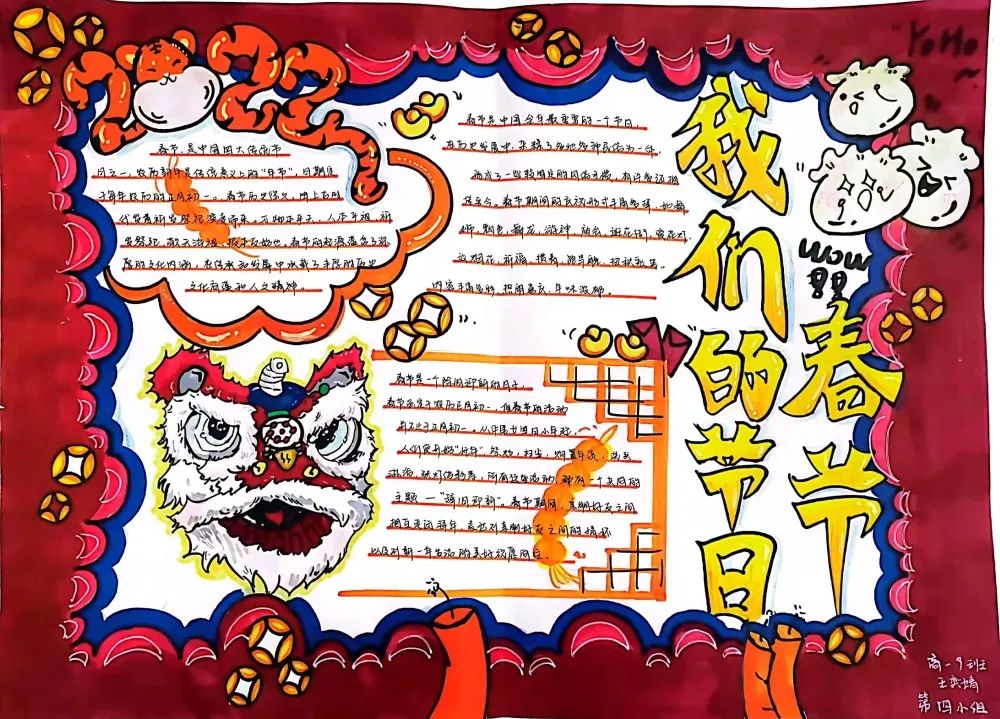 2022
春节是中国四大传统节
日之一,农历新年是传统意义上的"年节",日期是
每年农历的正月初一。春节历史悠久,由上古时
代岁首祈岁祭祀演变而来。万物本乎天、人本乎祖,祈
岁祭祀、敬天法祖,报本反始也。春节的起源蕴含了深
厚的文化内涵,在传承和发展中承载了丰厚的历史
文化底蕴和人文精神。
春节是中国全年最重要的一个节日
在历史发展中,杂糅了多地多种民俗为一体
形成了一些较固定的风俗习惯,有许多还相
传至今。春节期间的庆祝形式丰富多样,
舞龙、游神、庙会、逛花街、赏花灯、
放烟花、祈福、踩高跷、扭秧歌等。
内容丰富多彩,热闹喜庆,年味浓郁。
春节是一个除旧迎新的日子
春节虽定于农历正月初一,但春节的活动
却不止于正月初一。从年尾廿四日小年起
人们便开始"忙年":祭灶、扫尘、购置年货、洗头
沐浴、张灯结彩等,所有这些活动,都有一个共同的
主题—"辞旧迎新"。春节期间,亲朋好友之间
相互走访拜年,表达对亲朋好友之间的情怀
以及对新一年生活的美好祝愿
我们的节日
春节
YoHo
~
wow
!!
高一9班
第四小组